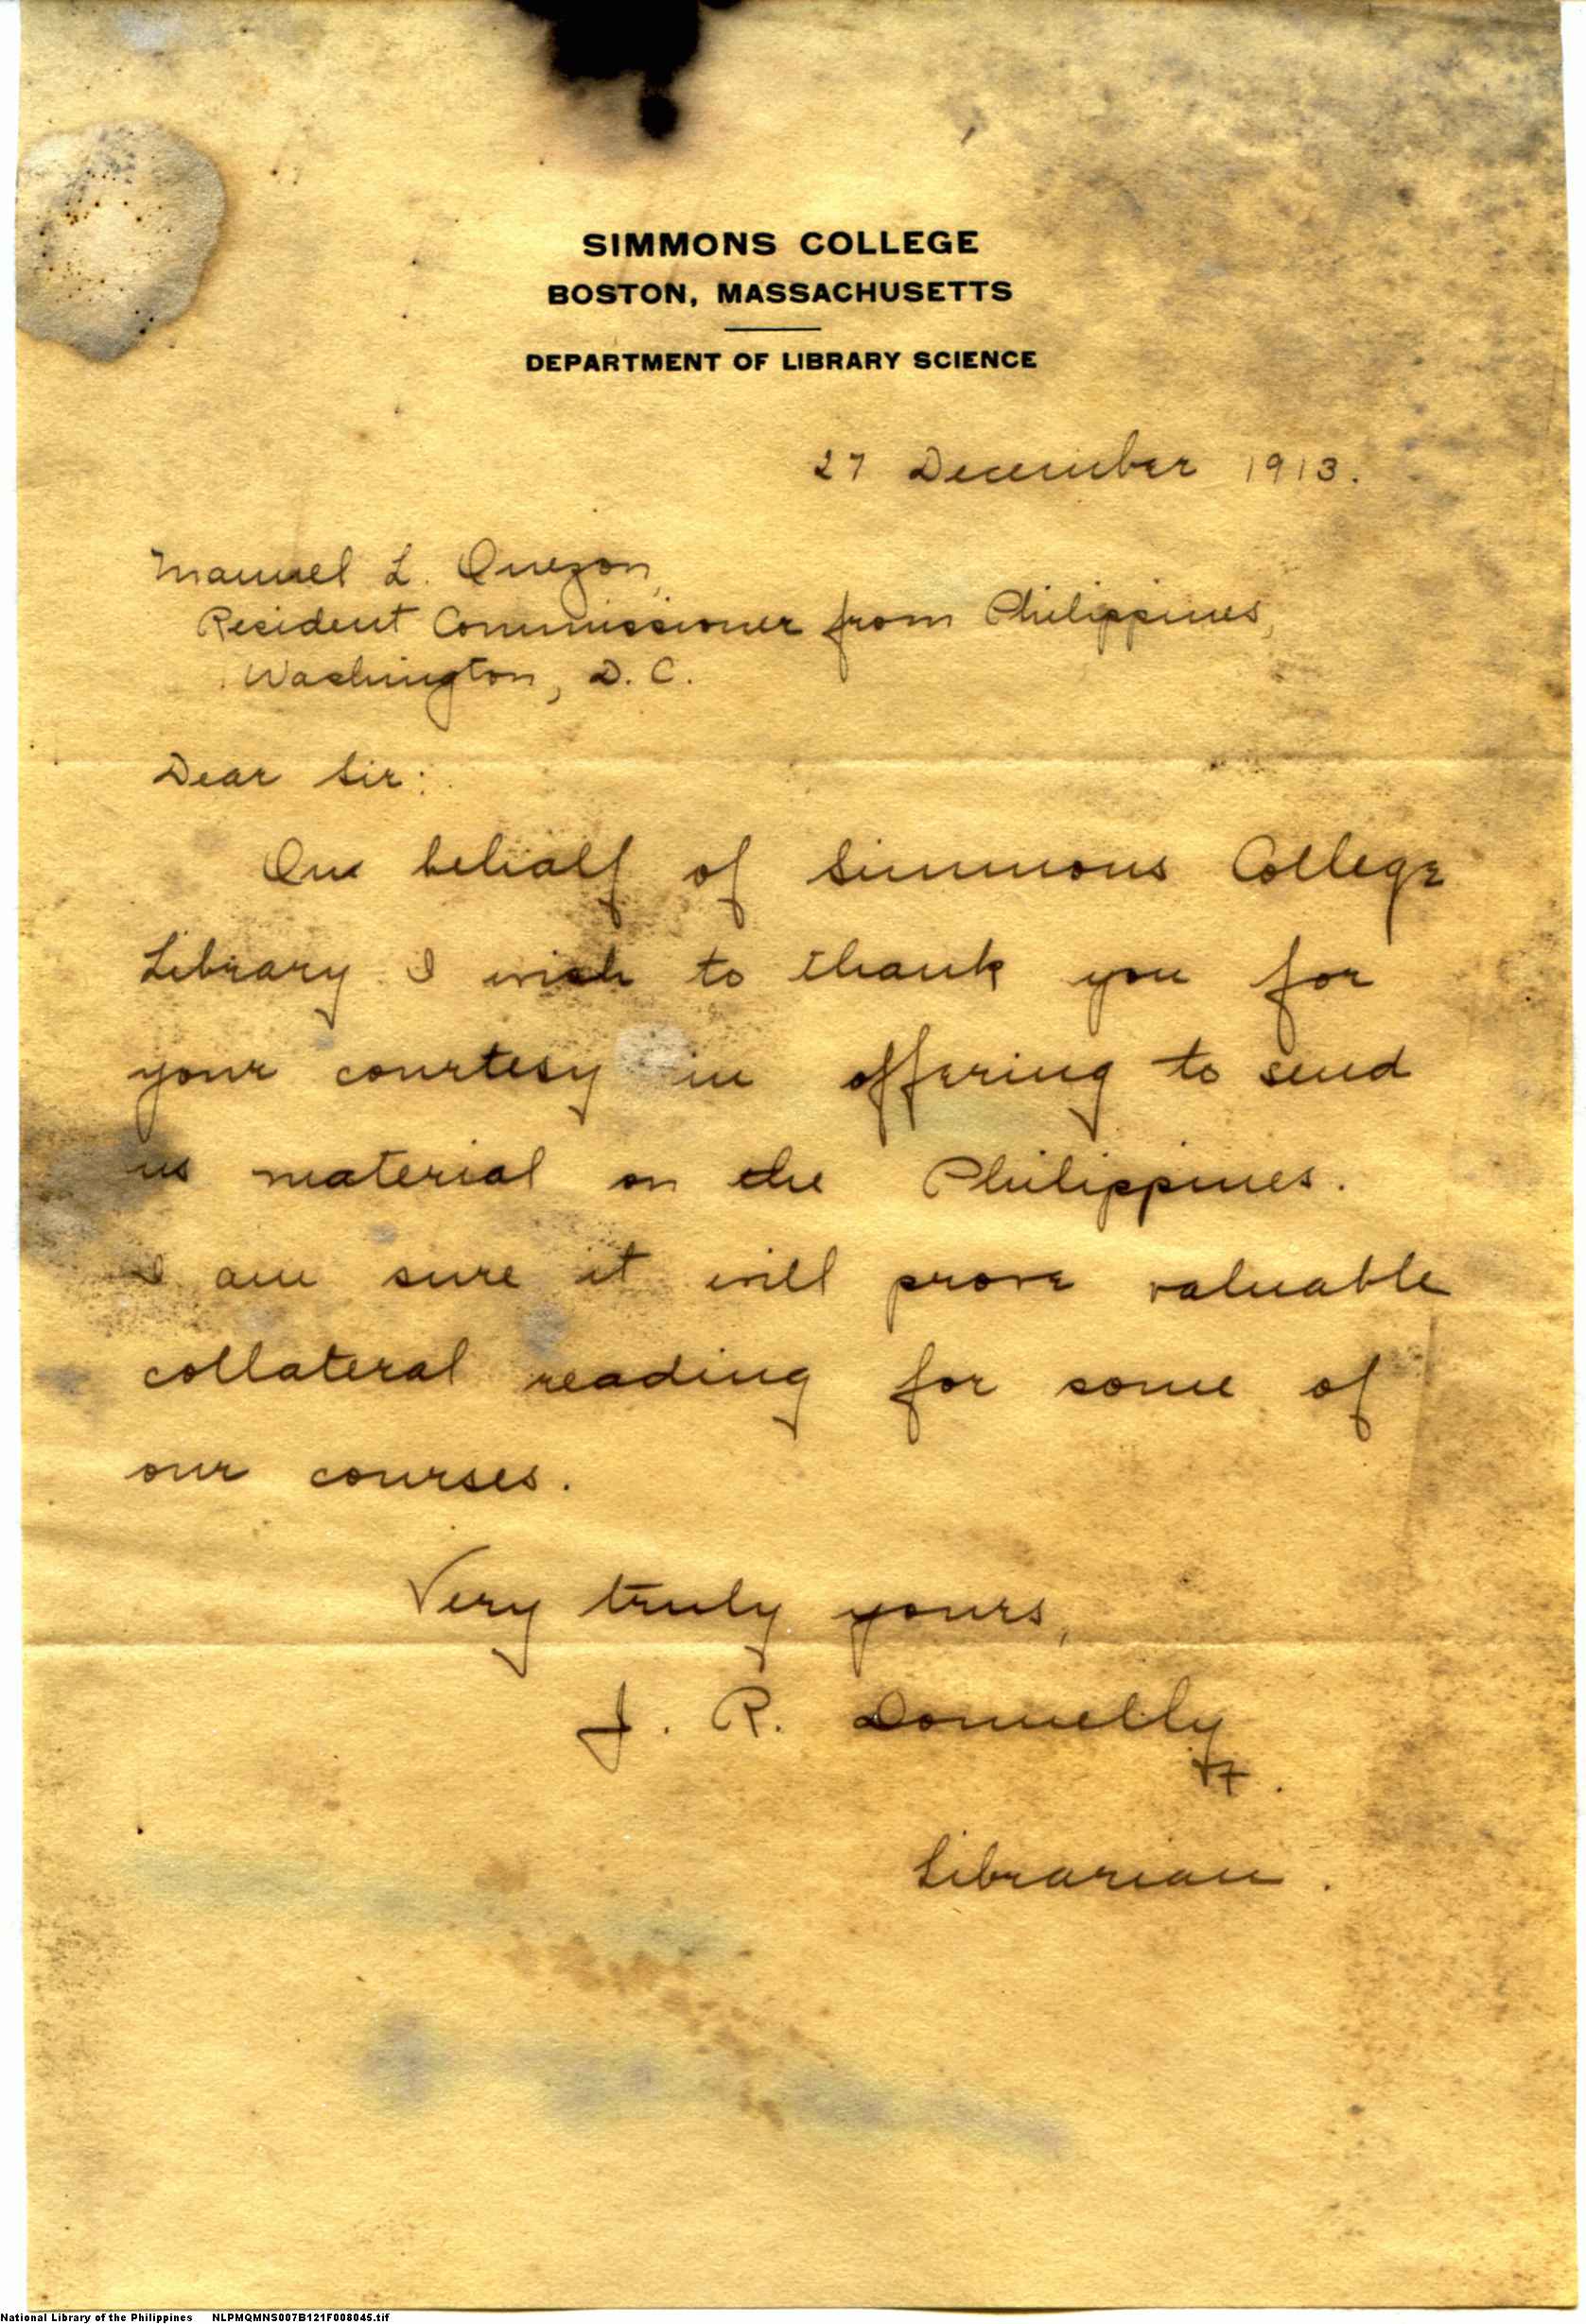 SIMMONS COLLEGE
BOSTON, MASSACHUSETTS
DEPARTMENT OF LIBRARY SCIENCE
27 December 1913.
Manuel L. Quezon,
Resident Commissioner from Philippines,
Washington, D. C.
Dear Sir:
On behalf of Simmons College
Library I wish to thank you for
your courtesy in offering to send
us material on the Philippines.
I am sure it will prove valuable
collateral reading for some of
our courses.
Very truly yours,
J. R. Donnelly
Librarian.
National Library of the Philippines NLPMQMNS007B121F008045.tif